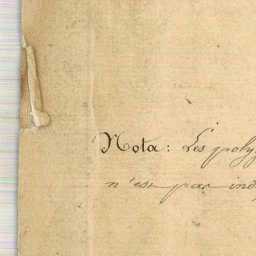 Nota: Les poly
n'est pas ind